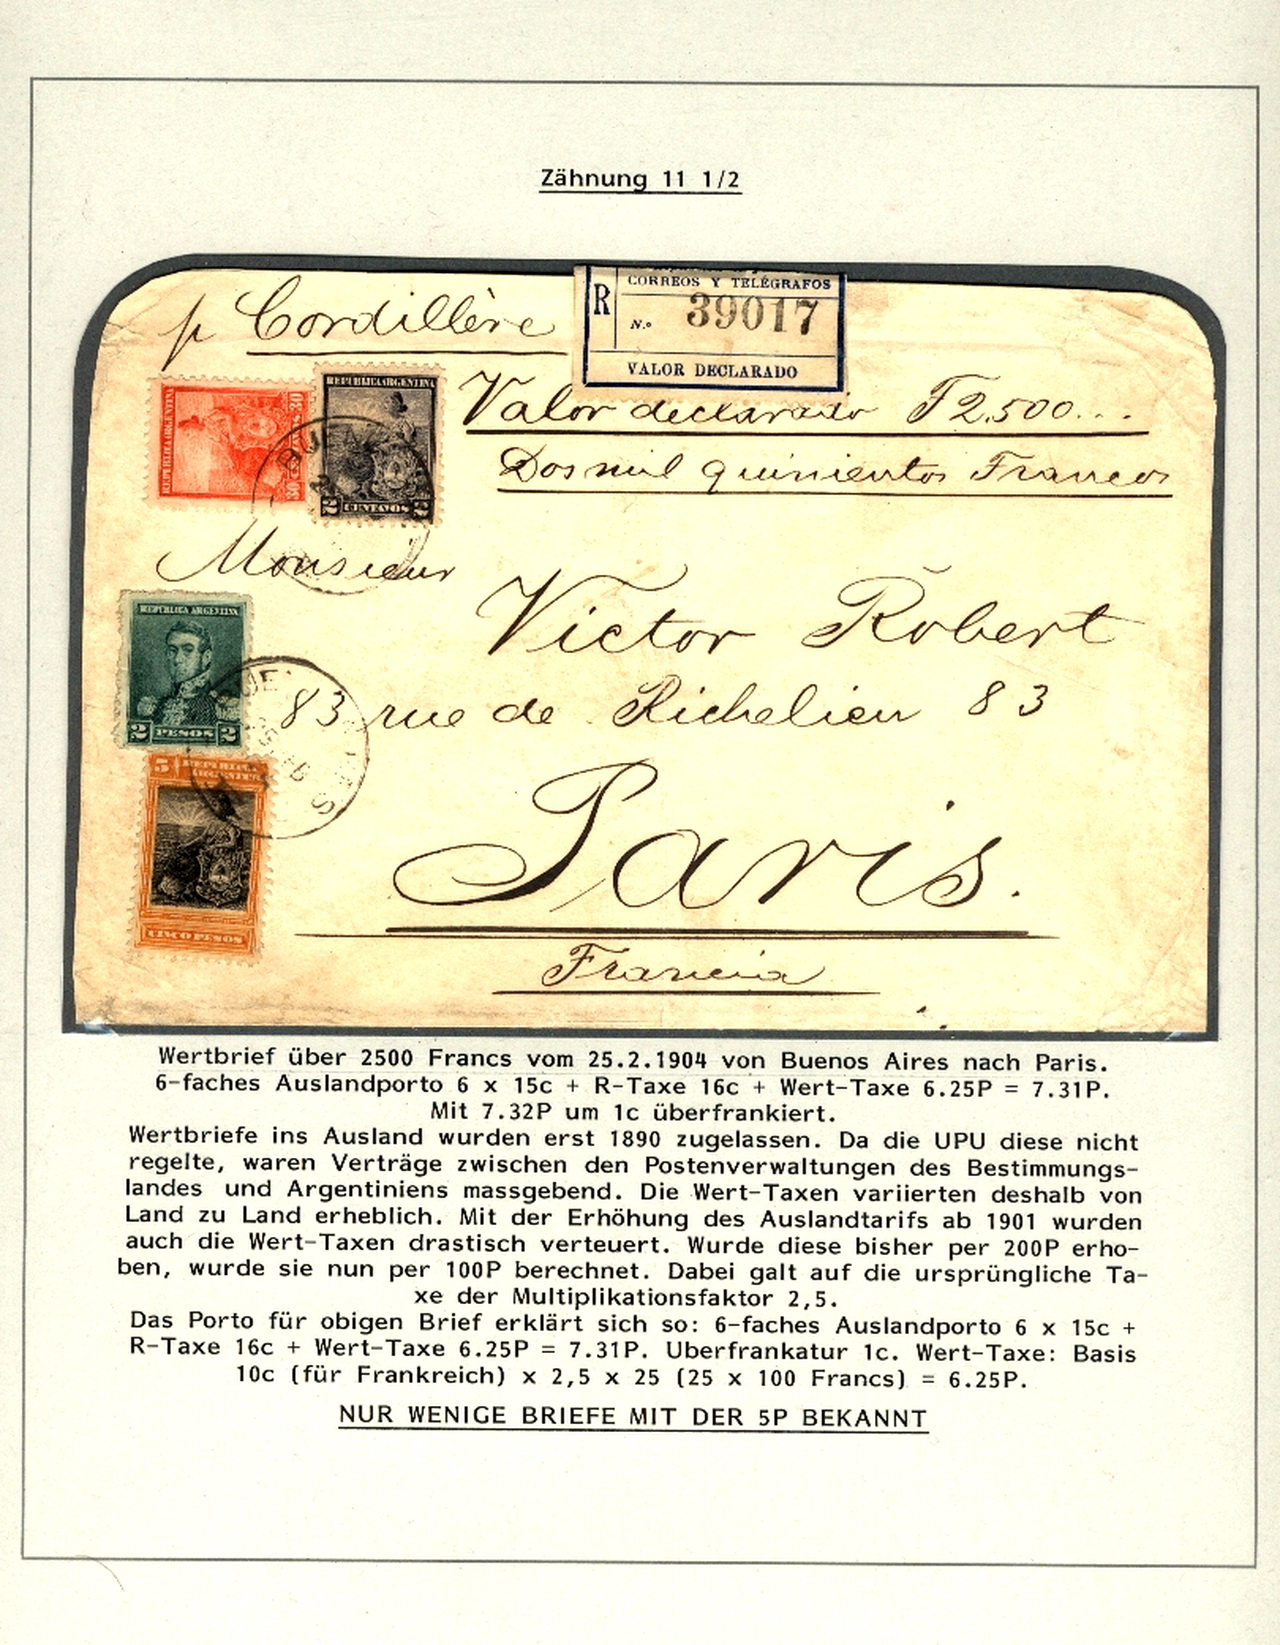 Zähnung 11 1/2
p Cordillère
CORREOS Y TELÉGRAFOS
R
N.º 39017
VALOR DECLARADO
Valor declarado F 2.500...
Dos mil quinientos Francos
REPUBLICA ARGENTINA
30 CENTAVOS 30
REPUBLICA ARGENTINA
2 CENTAVOS 2
Monsieur
Victor Robert
83 rue de Richelieu 83
Paris.
Francia
REPUBLICA ARGENTINA
2 PESOS 2
5 REPUBLICA
ARGENTINA
CINCO PESOS
Wertbrief über 2500 Francs vom 25.2.1904 von Buenos Aires nach Paris.
6-faches Auslandporto 6 x 15c + R-Taxe 16c + Wert-Taxe 6.25P = 7.31P.
Mit 7.32P um 1c überfrankiert.
Wertbriefe ins Ausland wurden erst 1890 zugelassen. Da die UPU diese nicht
regelte, waren Verträge zwischen den Postenverwaltungen des Bestimmungs-
landes und Argentiniens massgebend. Die Wert-Taxen variierten deshalb von
Land zu Land erheblich. Mit der Erhöhung des Auslandtarifs ab 1901 wurden
auch die Wert-Taxen drastisch verteuert. Wurde diese bisher per 200P erho-
ben, wurde sie nun per 100P berechnet. Dabei galt auf die ursprüngliche Ta-
xe der Multiplikationsfaktor 2,5.
Das Porto für obigen Brief erklärt sich so: 6-faches Auslandporto 6 x 15c +
R-Taxe 16c + Wert-Taxe 6.25P = 7.31P. Uberfrankatur 1c. Wert-Taxe: Basis
10c (für Frankreich) x 2,5 x 25 (25 x 100 Francs) = 6.25P.
NUR WENIGE BRIEFE MIT DER 5P BEKANNT